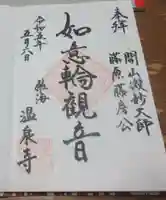 奉拝
開山微妙大師
藤原藤房公
如意輪観音
令和五年
五月八日
熱海
温泉寺